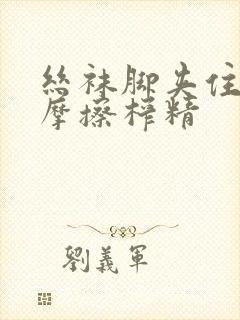 丝袜脚夹住
摩擦榨精
劉義軍